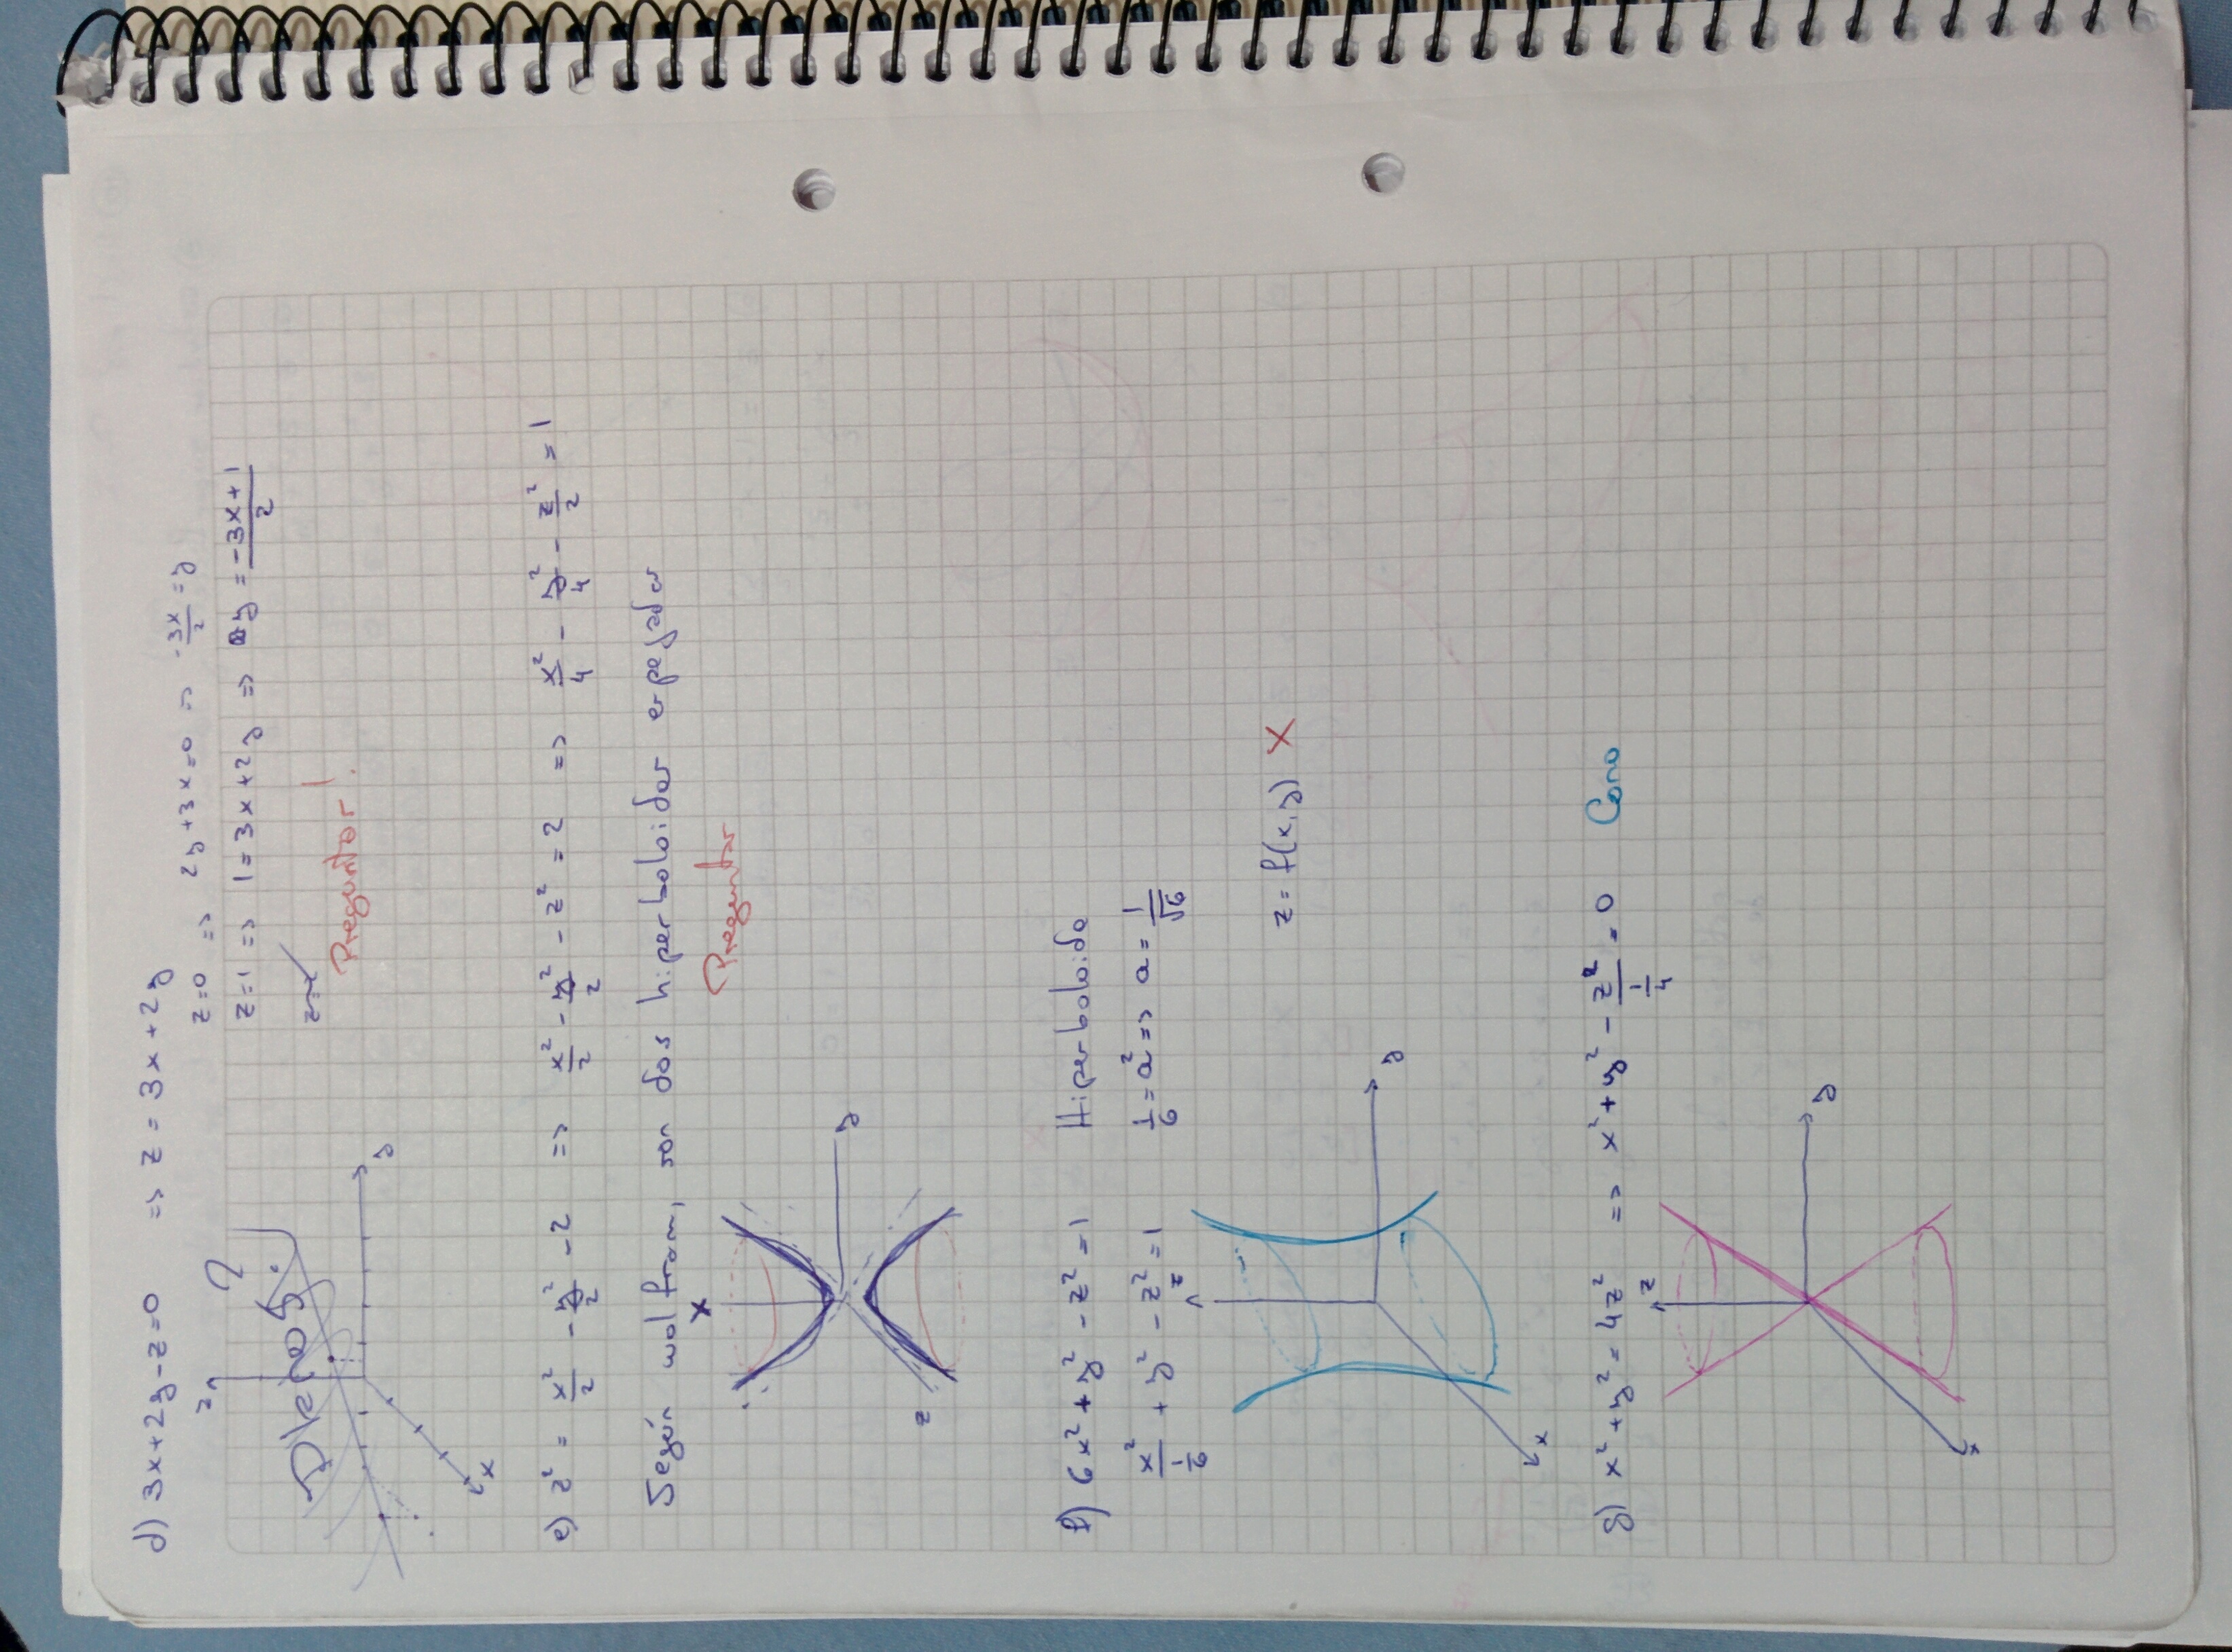 d) 3x+2y-z=0 => z = 3x+2y
z=0 => 2y+3x=0 => -3x/2 = y
z=1 => 1=3x+2y => y = (-3x+1)/2
Preguntar!
z
?
y
x
e) z² = x²/2 - y²/2 - 2 => x²/2 - y²/2 - z² = 2 => x²/4 - y²/4 - z²/2 = 1
Según wolfram, son dos hiperboloides espejados
Preguntar
x
y
z
f) 6x² + y² - z² = 1 Hiperboloide
x²/(1/6) + y² - z² = 1 1/6 = a² => a = 1/√6
z
z = f(x,y) X
y
x
g) x² + y² = 4z² => x² + y² - z²/(1/4) = 0 Cono
z
y
x